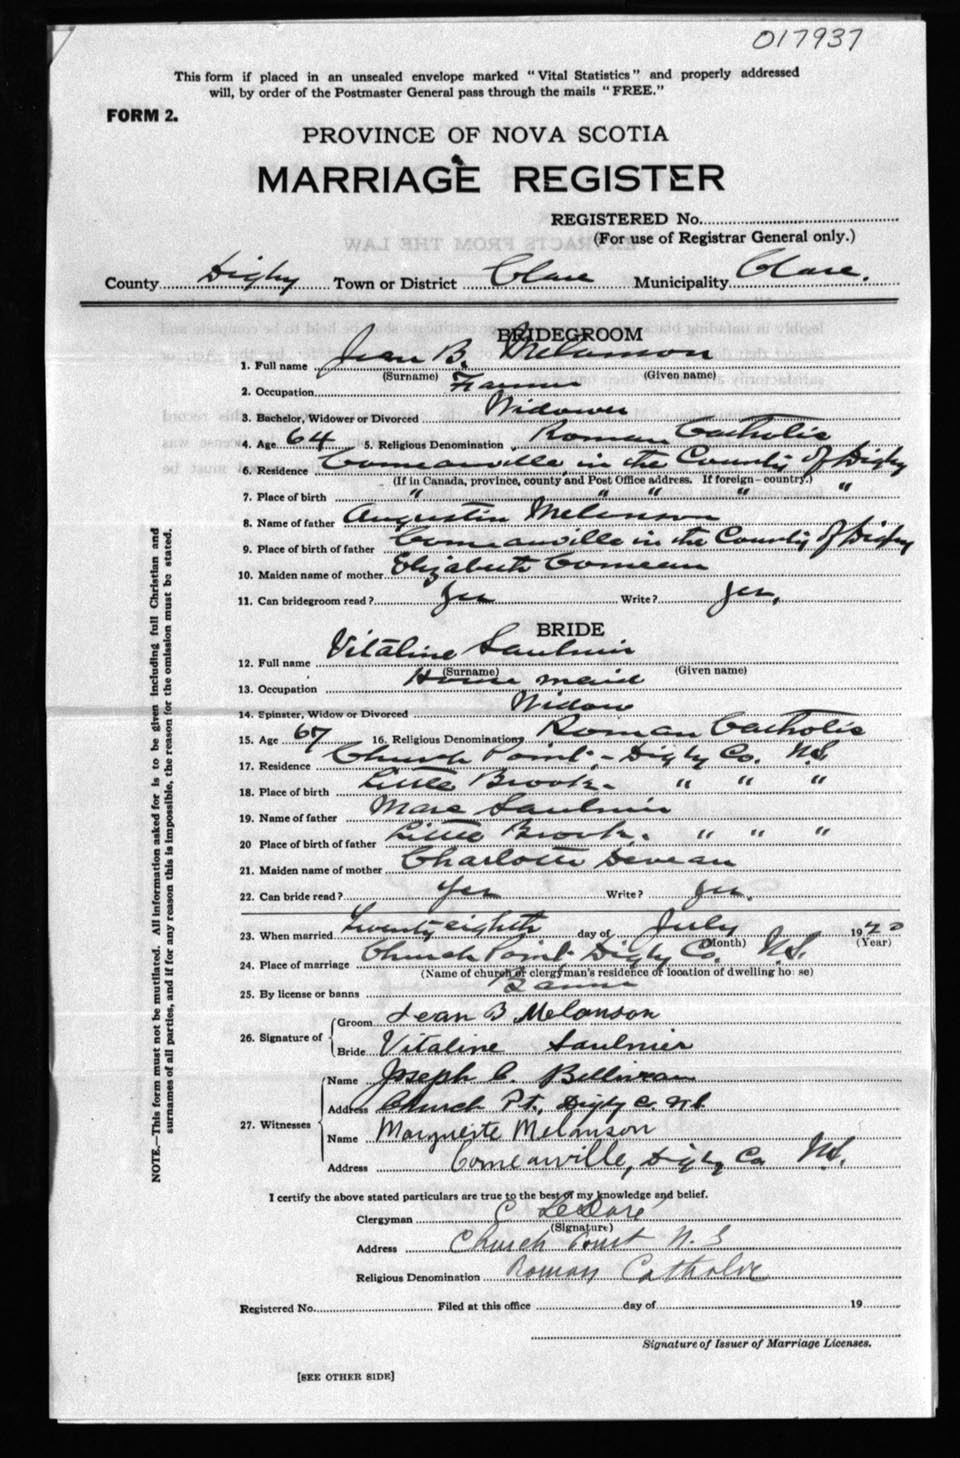 017937
This form if placed in an unsealed envelope marked "Vital Statistics" and properly addressed
will, by order of the Postmaster General pass through the mails "FREE."
FORM 2.
PROVINCE OF NOVA SCOTIA
MARRIAGE REGISTER
REGISTERED No.
(For use of Registrar General only.)
County Digby Town or District Clare Municipality Clare.
BRIDEGROOM
1. Full name Jean B. Melanson
(Surname) (Given name)
2. Occupation Farmer
3. Bachelor, Widower or Divorced Widower
4. Age 64 5. Religious Denomination Roman Catholic
6. Residence Comeauville in the County of Digby
(If in Canada, province, county and Post Office address. If foreign-country.)
7. Place of birth " " " " "
8. Name of father Augustin Melanson
9. Place of birth of father Comeauville in the County of Digby
10. Maiden name of mother Elizabeth Comeau
11. Can bridegroom read? Yes Write? Yes,
BRIDE
12. Full name Vitaline Saulnier
(Surname) (Given name)
13. Occupation House maid
14. Spinster, Widow or Divorced Widow
15. Age 67 16. Religious Denomination Roman Catholic
17. Residence Church Point - Digby Co. N.S.
18. Place of birth Little Brook - " " "
19. Name of father Marc Saulnier
20 Place of birth of father Little Brook. " " "
21. Maiden name of mother Charlotte Deveau
22. Can bride read? Yes Write? Yes.
23. When married Twenty eighth day of July 1920
(Month) (Year)
24. Place of marriage Church Point Digby Co. N.S.
(Name of church or clergyman's residence or location of dwelling house)
25. By license or banns Banns
26. Signature of Groom Jean B Melonson
Bride Vitaline Saulnier
27. Witnesses Name Joseph C. Belliveau
Address Church Pt., Digby Co. N.S.
Name Marguerite Melanson
Address Comeauville, Digby Co. N.S.
I certify the above stated particulars are true to the best of my knowledge and belief.
Clergyman C LeDoré
(Signature)
Address Church Point N.S
Religious Denomination Roman Catholic
Registered No. Filed at this office day of 19
Signature of Issuer of Marriage Licenses.
[SEE OTHER SIDE]
NOTE.—This form must not be mutilated. All information asked for is to be given including full Christian and
surnames of all parties, and if for any reason this is impossible, the reason for the omission must be stated.